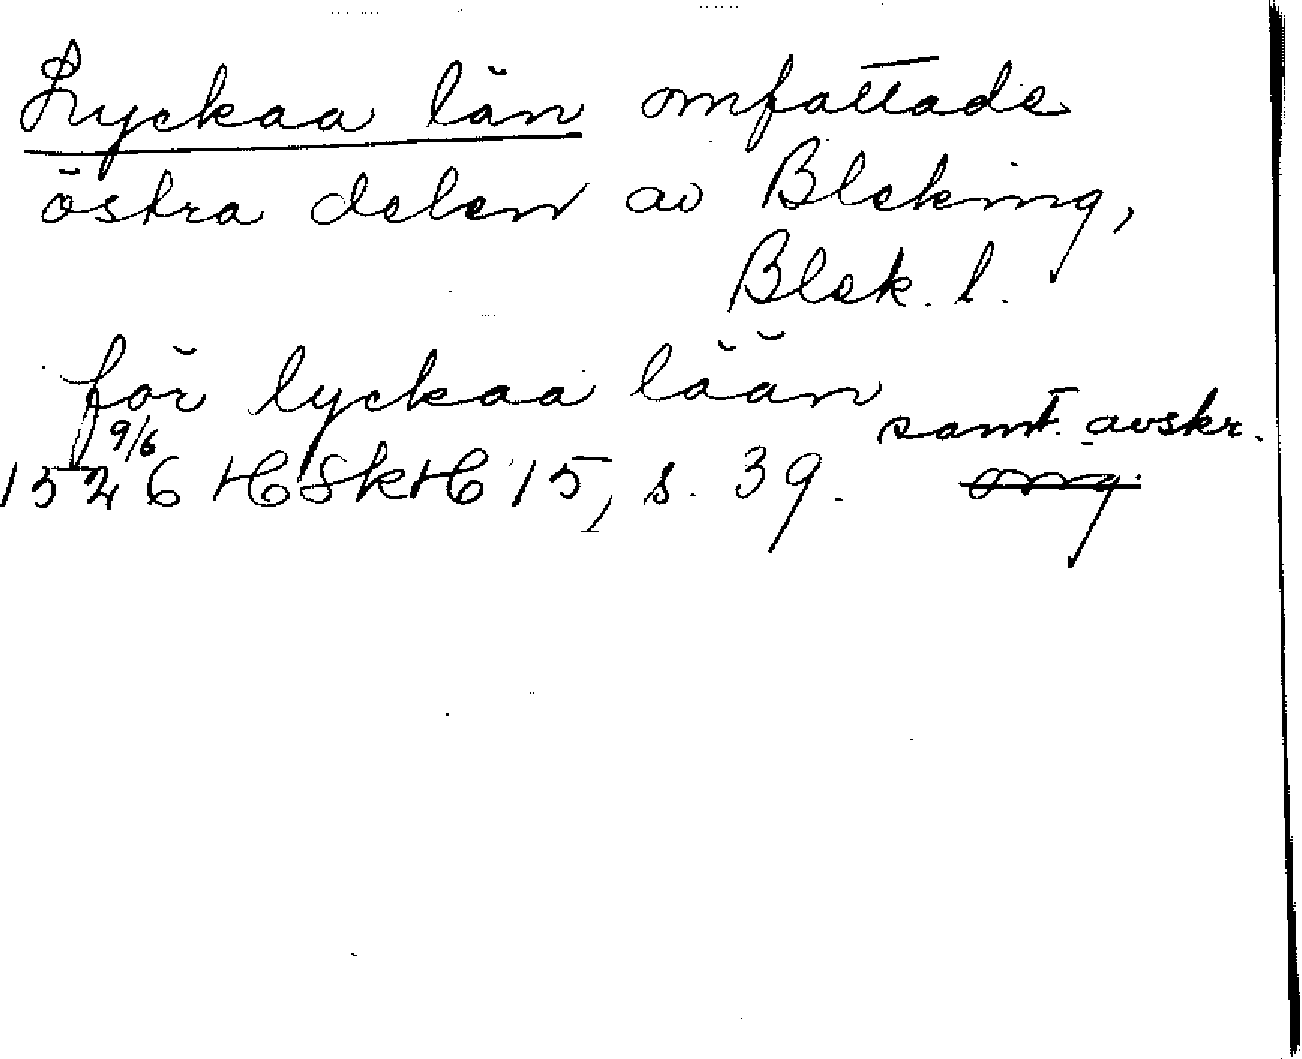 Lyckaa län omfattade
östra delen av Bleking,
Blek. l.
för lyckaa lään
samt. avskr.
1526 9/6 HSkH 15, s. 39. org.